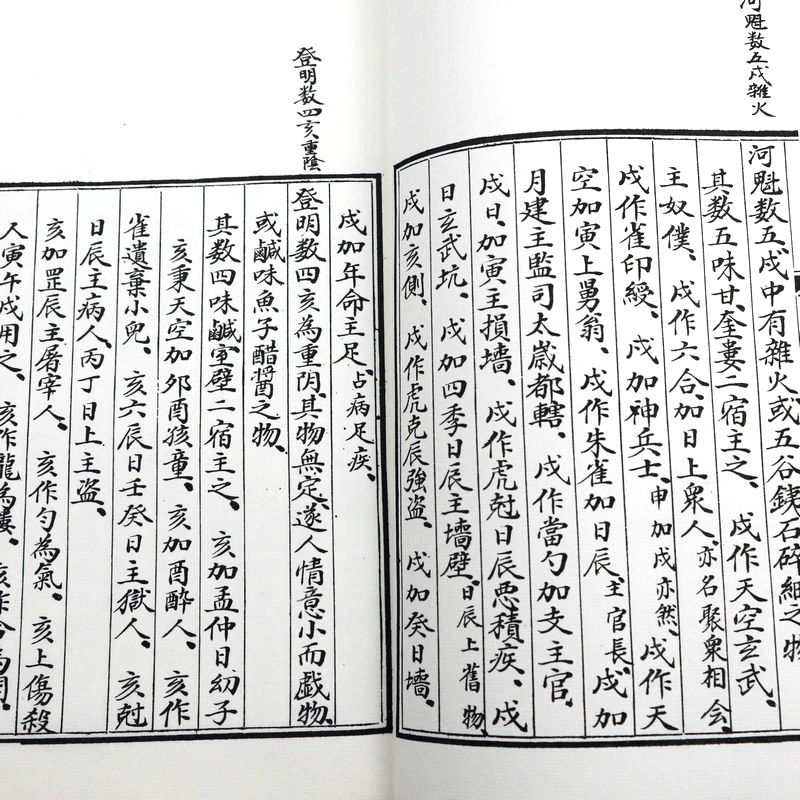 河魁数五戌雜火
河魁数五、戌中有雜火或五谷鉄石碎細之物
其数五味甘、奎婁二宿主之、戌作天空玄武、
主奴僕、戌作六合、加日上衆人、亦名聚衆相会、
戌作雀印綬、戌加神兵士、申加戌亦然、戌作天
空加寅上舅翁、戌作朱雀加日辰、主官長、戌加
月建主監司太歲都轄、戌作當勺加支主官、
戌日、加寅主損墻、戌作虎尅日辰悪積疾、戌
日玄武坑、戌加四季日辰主墻壁、日辰上舊物、
戌加亥側、戌作虎克辰強盗、戌加癸日墻、
登明数四亥重陰
戌加年命主足、占病足疾、
登明数四、亥為重阴、其物無定、遂人情意小而戯物、
或鹹味魚子醋醬之物、
其数四味鹹、室壁二宿主之、亥加孟仲日幼子
亥乗天空加夘酉孩童、亥加酉酔人、亥作
雀遺棄小児、亥六辰日壬癸日主獄人、亥尅
日辰主病人、丙丁日上主盗、
亥加罡辰主屠宰人、亥作勾為氣、亥上傷殺
人寅午戌用之、亥作龍為